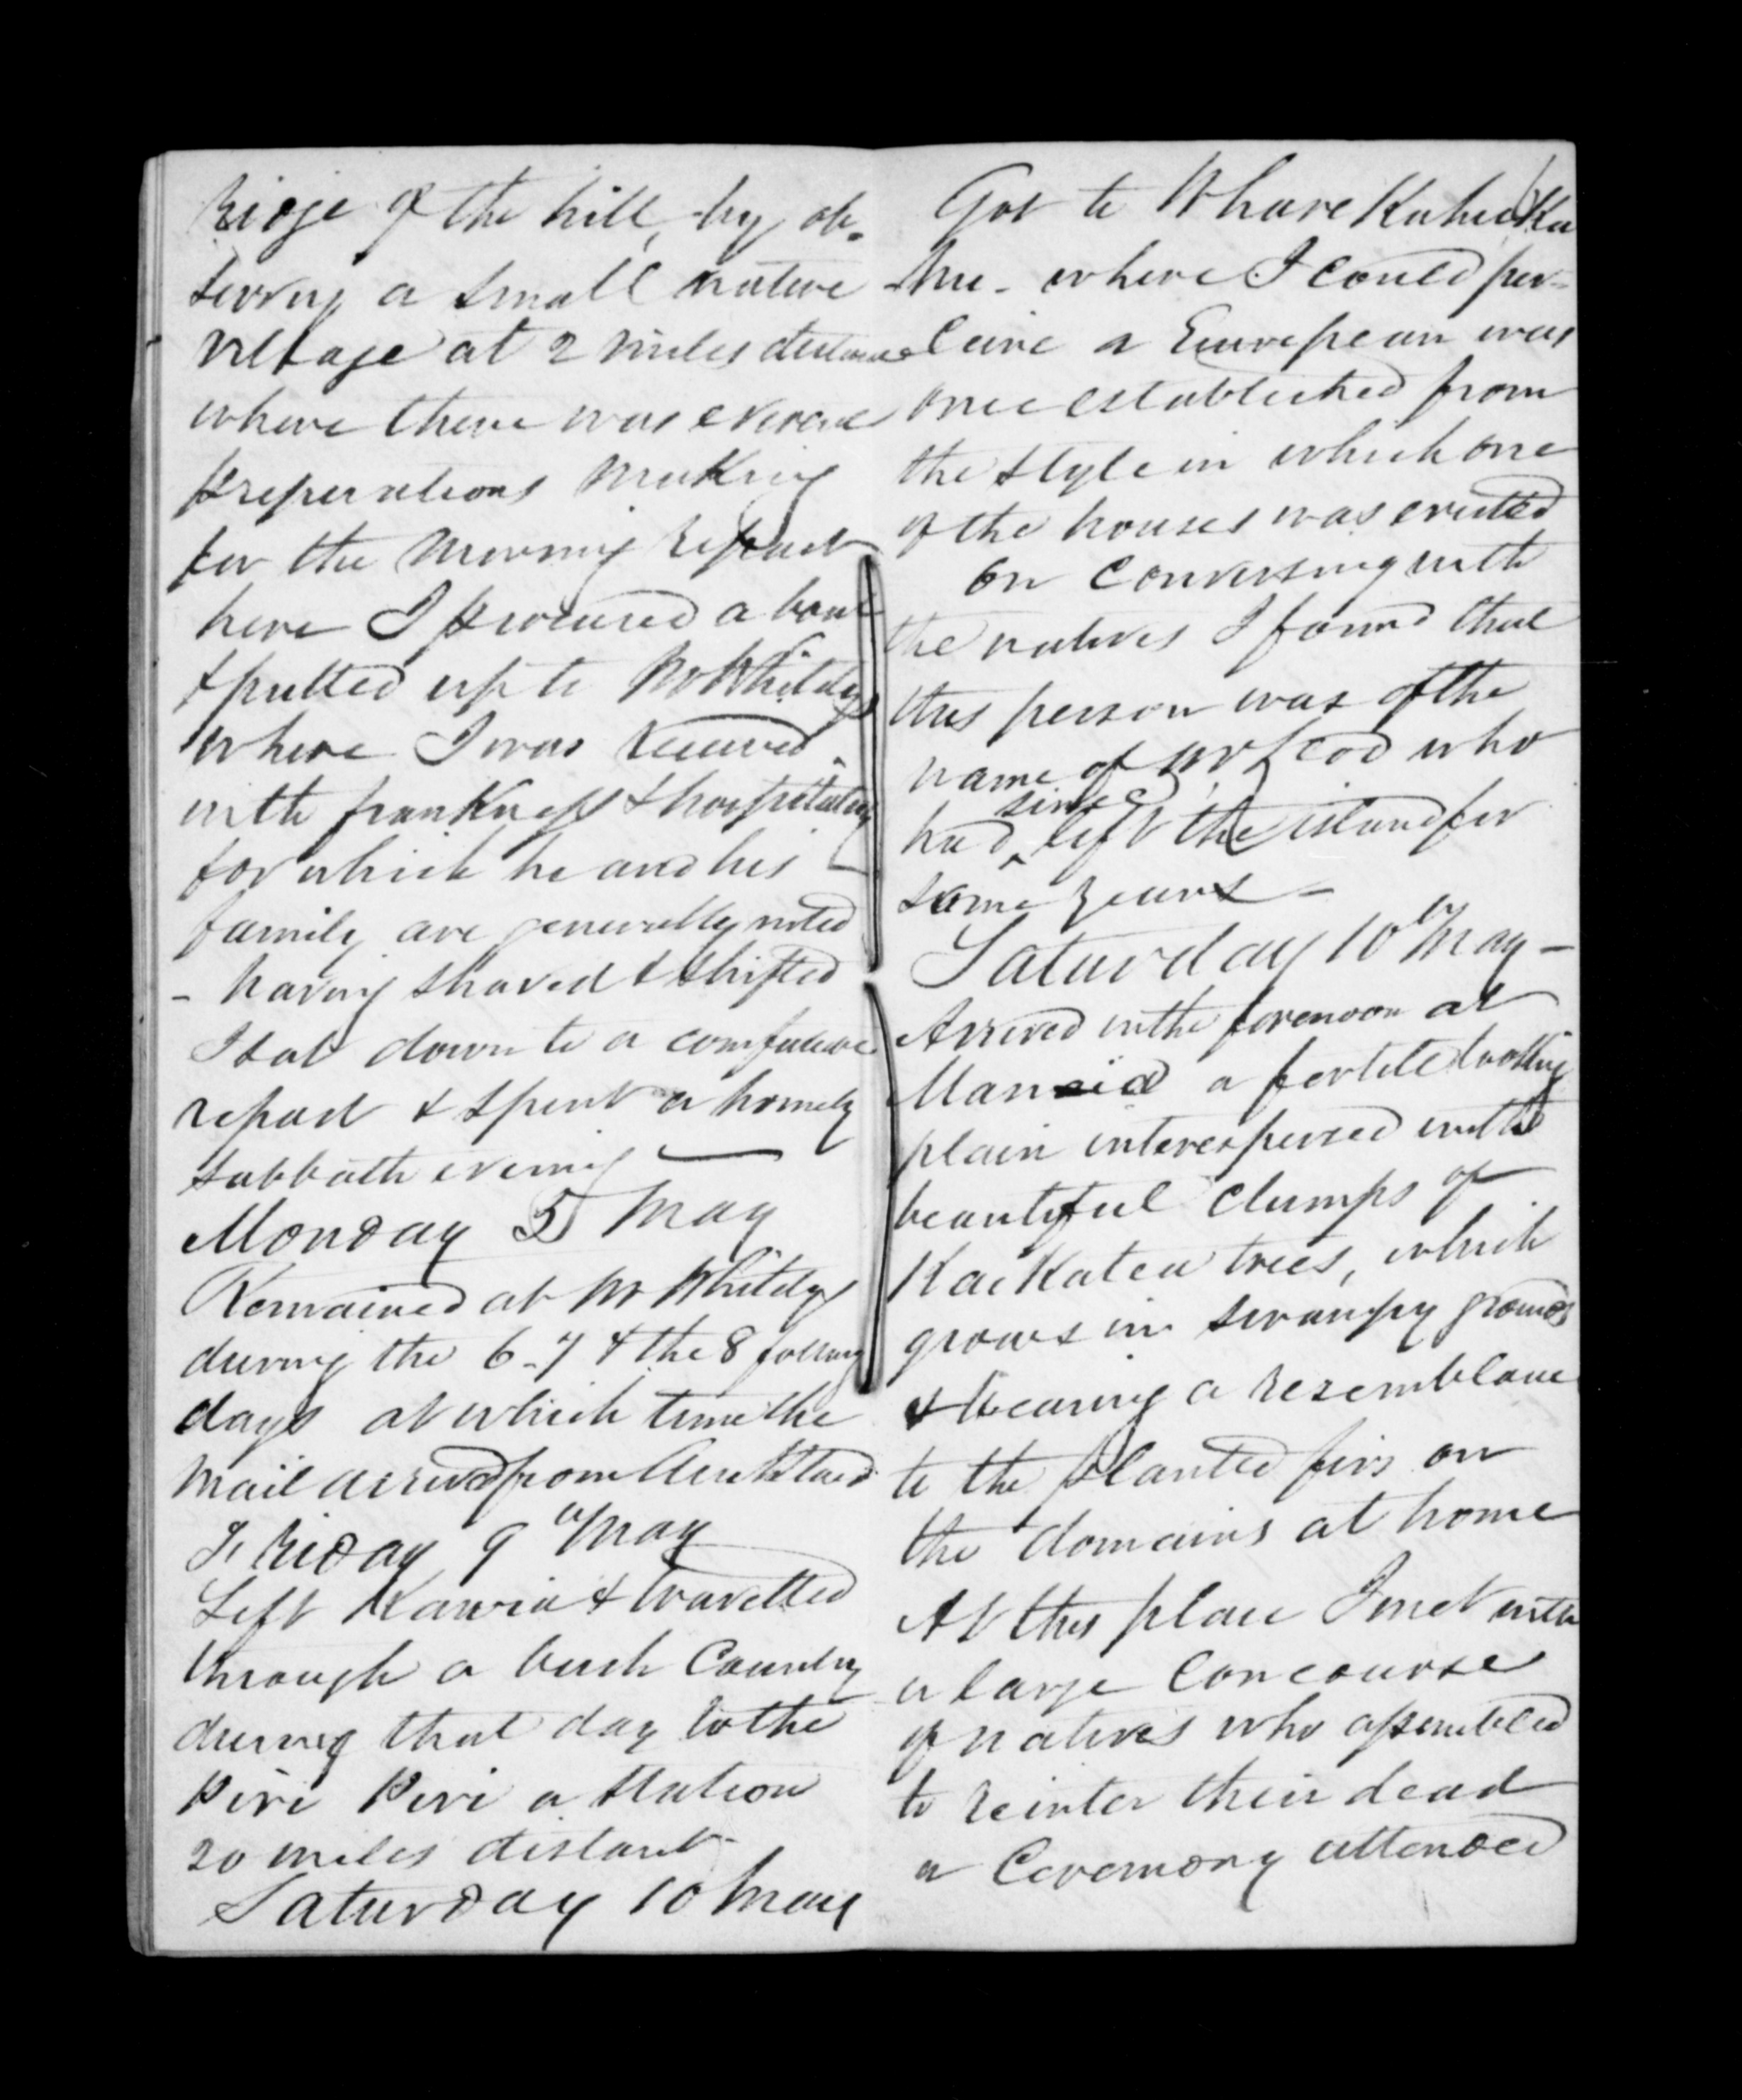 Ridge of the hill, by ob-
serving a small native
village at 2 miles distance
where there was
preperations making
for the morning repast
here I procured a boat
& pulled up to Mr Whitelys
where I was received
with frankness & hospitality
for which he and his
family are generally noted
- having shaved & shifted
I sat down to a comfortable
repast & spent a homely
sabbath evening —
Monday 5 May
Remained at Mr Whitelys
during the 6-7 & the 8 following
days at which time the
mail arrived from Auckland
Friday 9th May
Left Kawia & travelled
through a bush Country
during that day to the
Piri Piri a station
20 miles distant
Saturday 10 May
Got to Whare
where I could per-
ceive a European was
once established from
the style in which one
of the houses was erected
On conversing with
the natives I found that
this person was of the
name of McLeod who
had since left the island for
some years -
Saturday 10th May -
Arrived in the forenoon at
a fertile looking
plain interespersed with
beautiful clumps of
Kaikatea trees, which
grows in swampy grounds
& bearing a resemblance
to the planted firs on
the domains at home
At this place I met with
a large concourse
of natives who assembled
to reinter their dead
a Ceremony attended